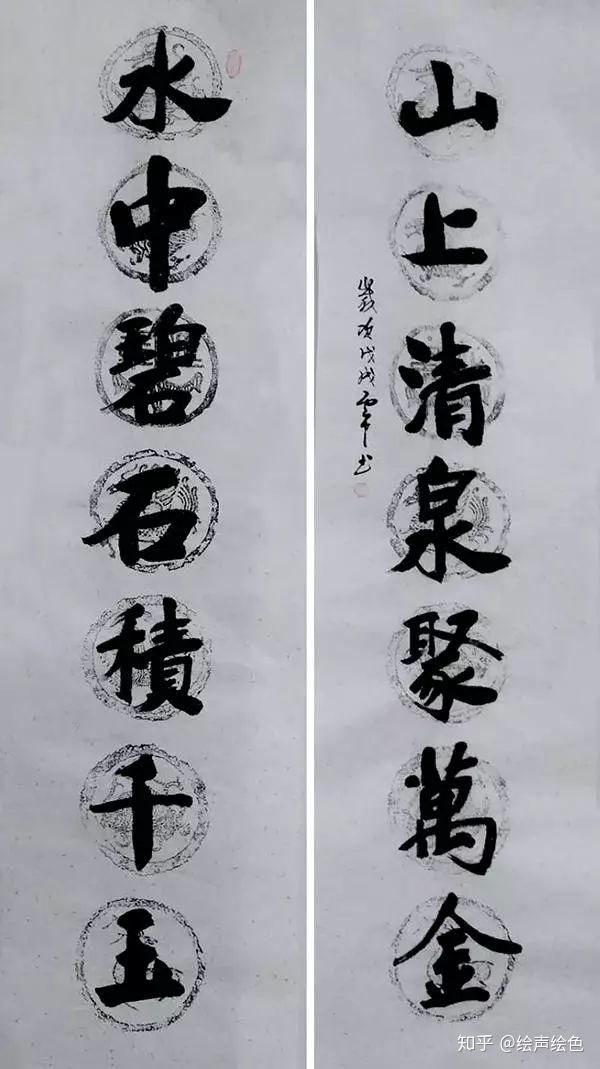 水中碧石積千玉
山上清泉聚萬金
歲次戊戌
知乎 @绘声绘色